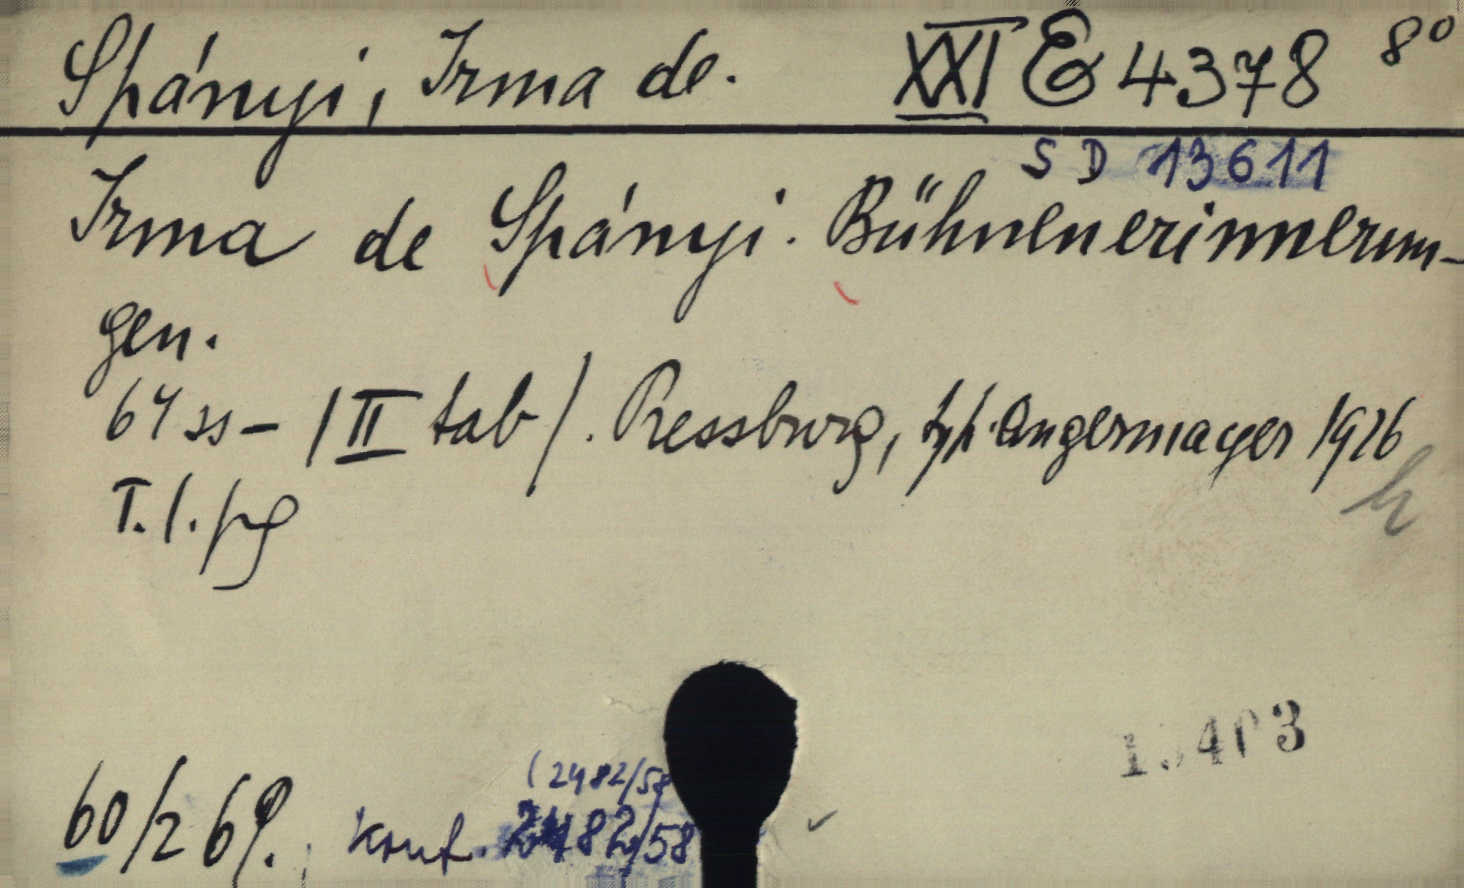 Spányi, Irma de. XXI E 4378 8°
SD 13611
Irma de Spányi. Bühnenerinnerun-
gen.
64 ss - / II tab /. Pressburg, typ. Angermayer 1926
T. l. pg
(2482/58
60/269. konf. 2482/58